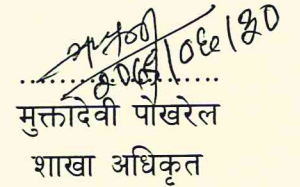 २०७६/०६/२०
....................
मुक्तादेवी पोखरेल
शाखा अधिकृत